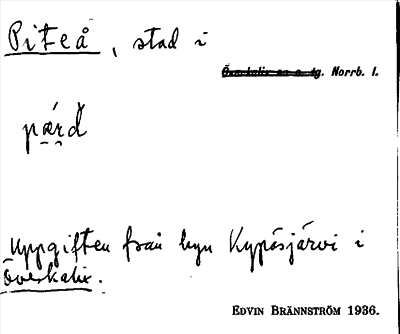 Piteå, stad i
Överkalix sn o. tg. Norrb. l.
pærd̄
Uppgiften från byn Kypåsjärvi i
Överkalix.
EDVIN BRÄNNSTRÖM 1936.